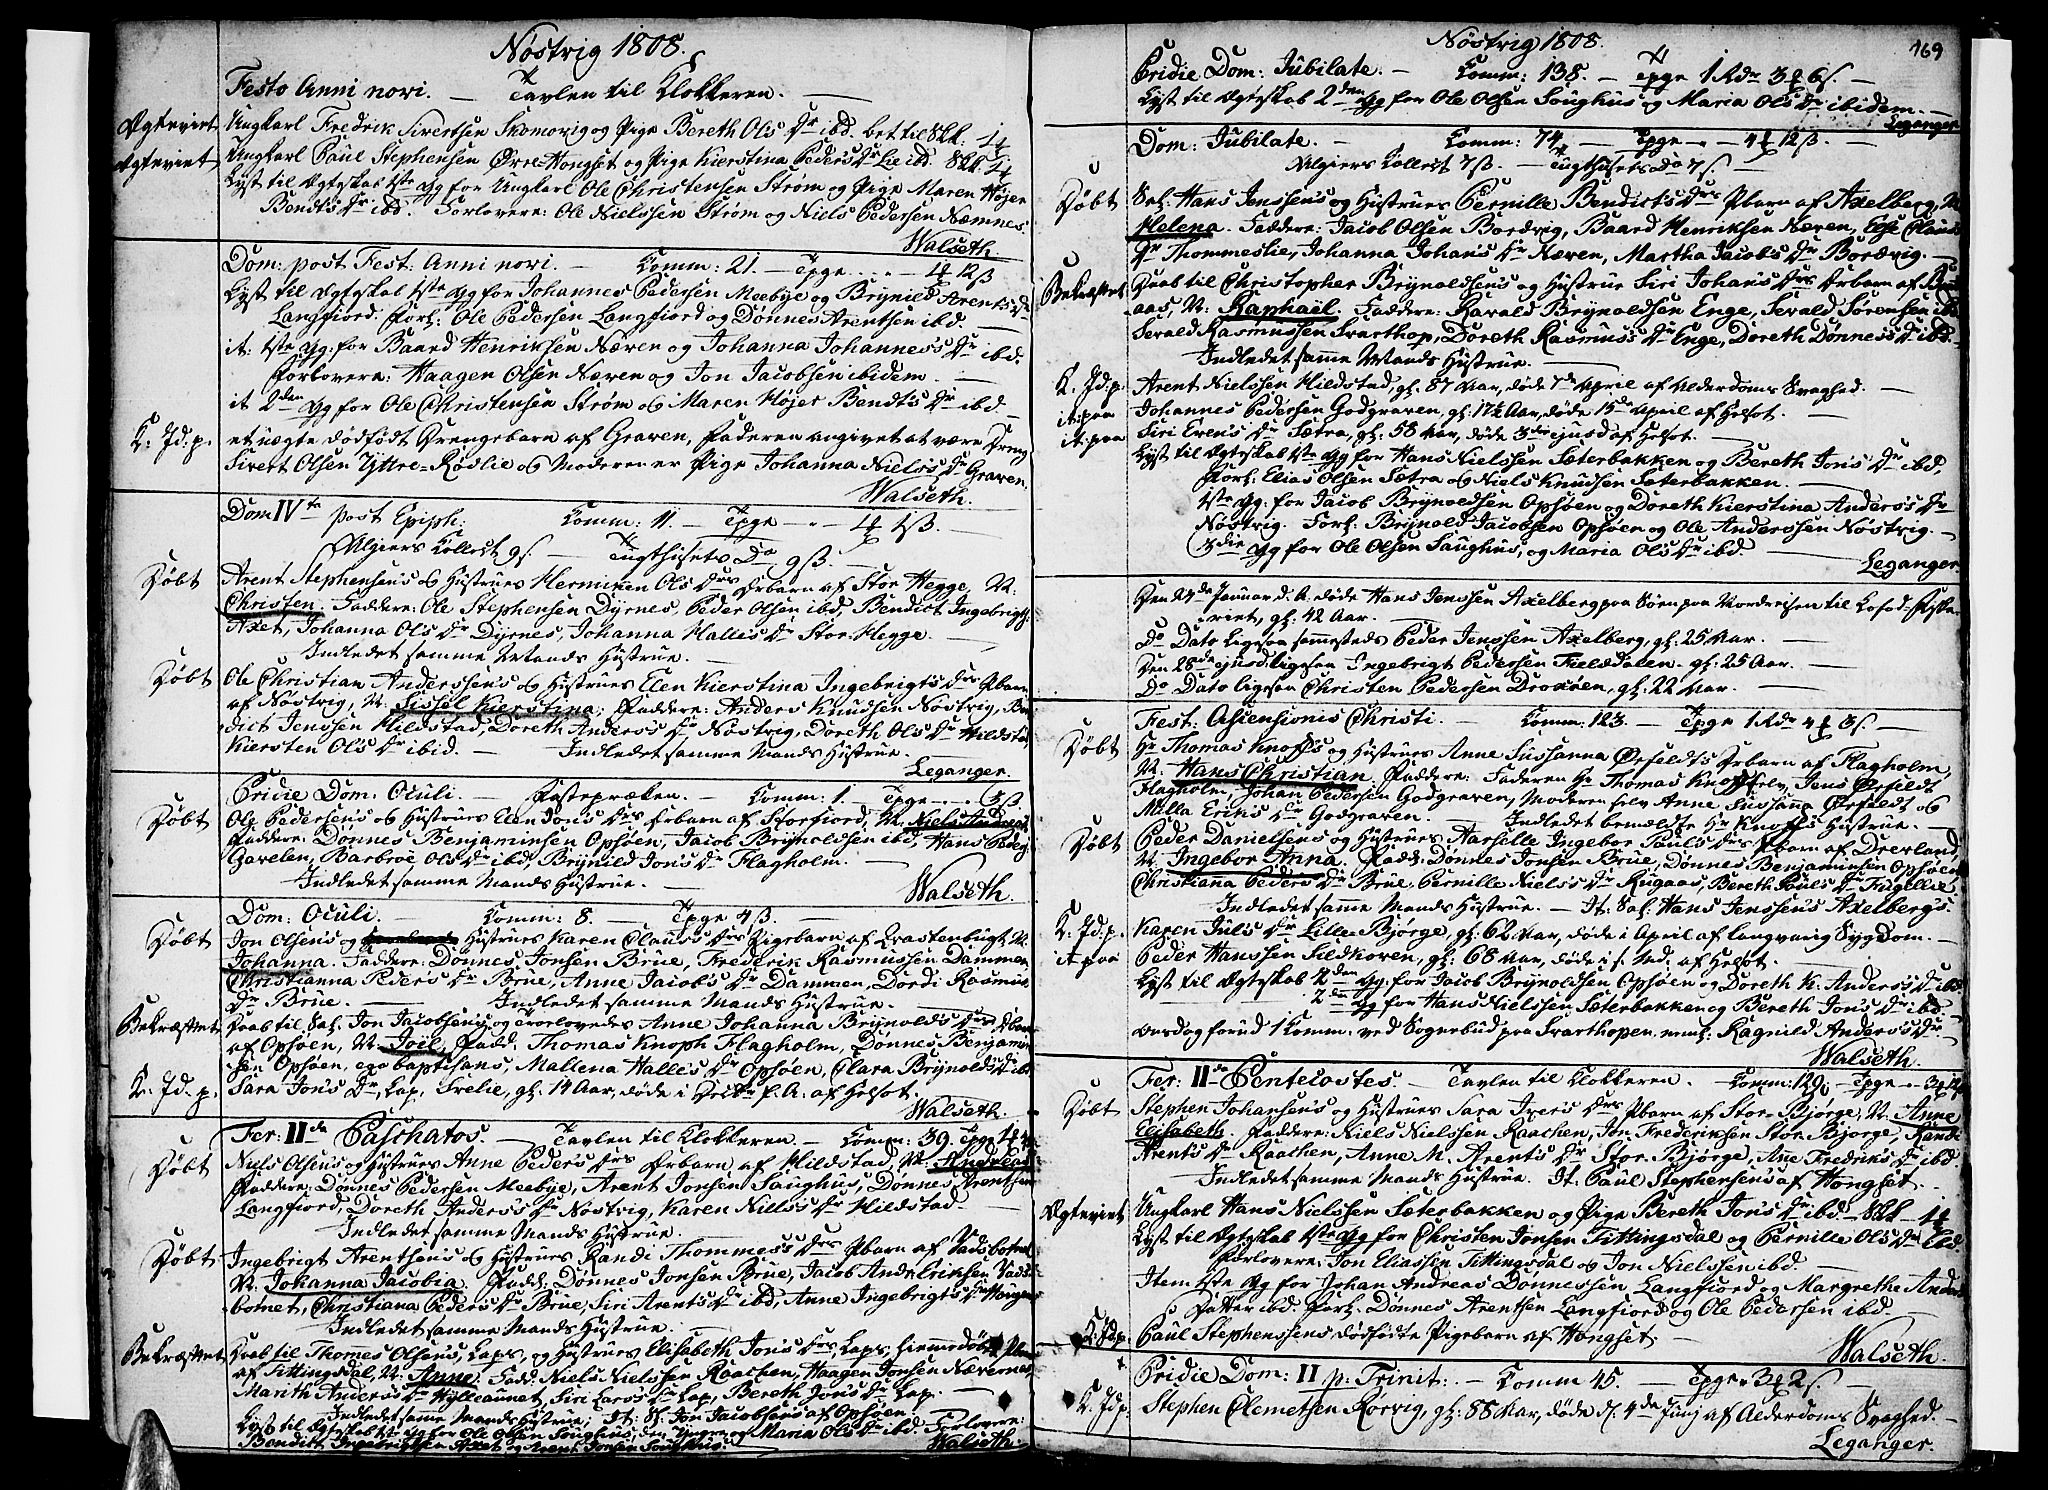 Nöstvig 1808.
Festo Anni novi. — Tavlen til Klokkeren. —
Ægteviet Ungkarl Fredrik Sivertsen Skomovig og Pige Bereth Ols Dr ibd. bet. til Skk. 1/4
Ægteviet Ungkarl Paul Stephensen Øvre-Hongset og Pige Kierstina Peders Dr Lie ibd. Skk 1/4
Lyst til Ægteskab 1ste Gg for Ungkarl Ole Christensen Ström og Pige Maren Höjer
Bendt's Dr ibd. Forlovere: Ole Nielssen Ström og Niels Pedersen Næmnes
Walseth.
Dom: post Fest: Anni novi. — Comm: 21. — Tpge — 4 12ß
Lyst til Ægteskab 1ste Gg for Johannes Pedersen Meebye og Brynild Arents Dr
Langfiord. Forl: Ole Pedersen Langfiord og Dönnes Arentsen ibd.
it: 1ste Gg: for Baard Henriksen Næven og Johanna Johannes's Dr ibd.
Forlovere: Haagen Olsen Næven og Jon Jacobsen ibidem. —
it 2den Gg for Ole Christensen Ström og Maren Höjer Bendt's Dr ibd. —
K: Jd: p. et uægte dödfödt Drengebarn af Graven, Faderen angivet at være Dreng
Sivert Olsen Yttre-Rödlie og Moderen er Pige Johanna Niels's Dr Graven.
Walseth.
Dom IVta post Epiph: Comm: 11. — Tpge — 4 1ß.
Algiers Collect 9ß. — Tugthusets Do 9ß. —
Döbt Arent Stephensen's og Hustrues Hermiken Ols Drs Drbarn af Stor Hegge, N:
Christen. Faddere: Ole Stephensen Dyrnes, Peder Olsen ibd, Bendict Ingebrigts:
Axet, Johanna Ols Dr Dyrnes, Johanna Halles Dr Stor-Hegge. —
Indledet samme Mands Hustrue. —
Döbt Ole Christian Anderssen's og Hustrues Elen Kierstina Ingebrigt's Drs Pbarn
af Nöstvig, N: Sissel Kierstina, Faddere: Anders Knudsen Nöstvig, Ben
dict Jenssen Hildstad, Doreth Anders's Dr Nöstvig, Doreth Ols Dr Hildstad,
Kiersten Ols Dr ibid. — Indledet samme Mands Hustrue. —
Leganger.
Pridie Dom: Oculi. — Fasteprækn. — Comm: 1. — Tpge — 3ß.
Döbt Ole Pedersen's og Hustrues Elen Jons Drs Drbarn af Storfiord, N: Niels Andreas,
Faddere: Dönnes Benjaminsen Opsöen, Jacob Brynoldsen ibd, Hans Peders:
Gavelen, Barbroe Ols Dr ibd, Brynild Jons Dr Flagholm. —
Indledet samme Mands Hustrue. —
Walseth.
Dom: Oculi. — Comm: 8. — Tpge 4ß. —
Döbt Jon Olsen's og Hustrues Karen Claus's Drs Pigebarn af Krastenbugt N:
Johanna. Faddere: Dönnes Jonsen Brue, Frederik Rasmussen Dammen,
Christianna Peders's Dr Brue, Anne Jacob's Dr Dammen, Dordi Rasmus's
Dr Brue. — Indledet samme Mands Hustrue. —
Bekræftet Daab til Sal. Jon Jacobsen's og Forlovedes Anne Johanna Brynolds Drs Dbarn
af Opsöen, N: Joel. Fadd: Thomas Knoph Flagholm, Dönnes Benjamin
sen Opsöen, ego baptisans, Mallena Halle's Dr Opsöen, Clara Brynold's Dr ibd.
K: Jd. p. Sara Jon's Dr, Lap, Srelie, gl: 14 Aar, döde i Octbr f. A. af Helsot. —
Walseth.
Fer: IIda Paschatos. — Tavlen til Klokkeren. — Comm: 39. Tpge
Döbt Niels Olsen's og Hustrues Anne Peder's Drs Drbarn af Hildstad, N: Andreas.
Faddere: Dönnes Pedersen Meebye, Arent Jonsen Saughus, Dönnes Arentsen
Langfiord, Doreth Anders's Dr Nöstvig, Karen Nills's Dr Hildstad. —
Indledet samme Mands Hustrue. —
Döbt Ingebrigt Arentsen's og Hustrues Randi Thommes's Drs Pbarn af Vadsbotnet
N: Johanna Jacobia. Fadd: Dönnes Jonsen Brue, Jacob Andr. Eriksen Vads
botnet, Christiana Peders Dr Brue, Siri Arents Dr ibd, Anne Ingebrigts Dr
Indledet samme Mands Hustrue. —
Bekræftet Daab til Thomes Olsen's, Laps, og Hustrues Elisabeth Jons Drs, Laps, hiemmedöbt
af Fittingsdal, N: Anne. Fadd: Niels Nielssen Raachen, Haagen Jonsen Næveren,
Marith Anders's Dr Hylleaunet, Siri Lars's Dr Lap, Bereth Jons Dr Lap. —
Indledet samme Mands Hustrue; It: Sl: Jon Jacobsens af Opsöen.
Lyst til Ægteskab 1ste Gg for Ole Olsen Soughus, den Yngre og Maria Ols Dr ibd. Forlovere:
Bendict Ingebrigtsen Axet og Arent Jonsen Soughus. Walseth.
Nöstvig 1808. 169
Pridie Dom: Jubilate. — Comm: 138. — Tpge 1 Rdr 3 6ß. —
Lyst til Ægteskab 2den Gg for Ole Olsen Soughus og Maria Ols Dr ibidem. —
Leganger.
Dom: Jubilate. Comm: 74. Tpge — 4 12ß. —
Algiers Collect 7ß. — Tugthusets Do 7ß. —
Döbt Sal: Hans Jenssen's og Hustrues Pernille Bendict's Drs Pbarn af Axelberg, N:
Helena. Faddere: Jacob Olsen Bordvig, Baard Henriksen Næven, Else Claus's
Dr Thommeslie, Johanna Johan's Dr Næven, Martha Jacobs Dr Bordvig. —
Bekræftet Daab til Christopher Brynoldsen's og Hustrue Siri Johan's Drs Drbarn af
aas, N: Raphaël. Faddere: Harald Brynoldsen Enge, Serald Sörensen ibd,
Serald Rasmussen Svarthop, Doreth Rasmus's Dr Enge, Doreth Dönnes's Dr ibd.
Indledet samme Mands Hustrue. —
K. Jd: p: Arent Nielssen Hildstad, gl: 87 Aar, döde 7de April af Alderdoms Svaghed. —
it: paa Johannes Pedersen Godgraven, gl: 17½ Aar, döde 15de April af Helsot. —
it: paa Siri Even's Dr Sætra, gl: 58 Aar, döde 3die ejusd af Helsot. —
Lyst til Ægteskab 1ste Gg for Hans Nielssen Sæterbakken og Bereth Jon's Dr ibd,
Forl: Elias Olsen Sætra og Niels Knudsen Sæterbakken. —
1ste Gg. for Jacob Brynoldsen Opsöen og Doreth Kierstina Anders's Dr
Nöstvig. Forl: Brynold Jacobsen Opsöen og Ole Anderssen Nöstvig. —
3die Gg for Ole Olsen Saughus, og Maria Ols Dr ibd. —
Leganger.
Den 24de Januar d. A. döde Hans Jenssen Axelberg paa Söen paa Nordreisen til Lofod-Fiske
riet, gl: 42 Aar. —
Do Dato ligesaa sammesteds Peder Jenssen Axelberg, gl: 25 Aar. —
Den 28de ejusd ligesaa Ingebrigt Pedersen Fieldalen. gl: 25 Aar. —
Do Dato ligesaa Christen Pedersen Droxöen, gl: 22 Aar. —
Fest: Ascensionis Christi. — Comm: 123. — Tpge 1 Rdr 4 3ß.
Döbt Hr Thomas Knoff's og Hustrues Anne Sussanna Örfeldt's Drbarn af Flagholm,
N: Hans Christian. Faddere: Faderen Hr Thomas Knoff selv, Jens Örfeldt
Flagholm, Johan Pedersen Godgraven, Moderen selv Anne Sussanna Örfeldt og
Milla Erik's Dr Godgraven. Indledet bemældte Hr Knoff's Hustrue. —
Döbt Peder Danielsen's og Hustrues Marselle Ingebor Pauls Drs Pbarn af Drevland,
N: Ingebor Anna. Fadd: Dönnes Jonsen Brue, Dönnes Benjaminsen Opsöen,
Christianna Peders Dr Brue, Pernille Niels's Dr Rugaas, Bereth Pouls Dr Fuglllie,
Indledet samme Mands Hustrue. — It: Sal: Hans Jenssen's Axelberg's.
K. Jd. p. Karen Juls Dr Lille-Bjorge, gl: 62 Aar, döde i April af langvarig Sygdom. —
it paa Peder Hanssen Sildkoven, gl: 68 Aar, döde i s. Md. af Helsot. —
Lyst til Ægteskab 2den Gg. for Jacob Brynoldsen Opsöen og Doreth K. Anders's Dr ibd.
2den Gg for Hans Nielssen Sæterbakken og Bereth Jons's Dr ibd. —
Marsdog forud 1 Comm. ved Sognebud paa Svarthopen, neml: Ragnild Anders's Dr.
Walseth.
Fer: IIda Pentecostes. — Tavlen til Klokkeren. — Comm: 129. — Tpge — 3
Döbt Stephen Johansen's og Hustrues Sara Iver's Drs Pbarn af Stor-Bjorge, N: Anne
Elisabeth. Faddere: Niels Nielssen Raachen, Jon Frederiksen Stor-Bjorge, Randi
Arents Dr Raachen, Anne M. Arents Dr Stor-Bjorge, Anne Fredrik's Dr ibd.
Indledet samme Mands Hustrue. It: Paul Stephensen's af Hongset. —
Ægteviet Ungkarl Hans Nielssen Sæterbakken og Pige Bereth Jons Dr ibd. — Skk — 1/4
Lyst til Ægteskab 1ste Gg for Christen Jonsen Fittingsdal og Pernille Ols Dr ibd.
Forlovere: Jon Eliassen Fittingsdal og Jon Nielssen ibd. —
Item 1ste Gg for Johan Andreas Dönnessen Langfiord og Margrethe Anders
Datter ibd. Forl: Dönnes Arentsen Langfiord og Ole Pedersen ibd. —
K. Jd p: Paul Stephenssens dödfödte Pigebarn af Hongset. —
Walseth.
Pridie Dom: II p: Trinit: — Comm 45. — Tpge 3 2ß. —
K. Jd p: Stephen Clemetsen Korvig, gl: 88 Aar, döde d. 4de Junj af Alderdoms Svaghed. —
Leganger.